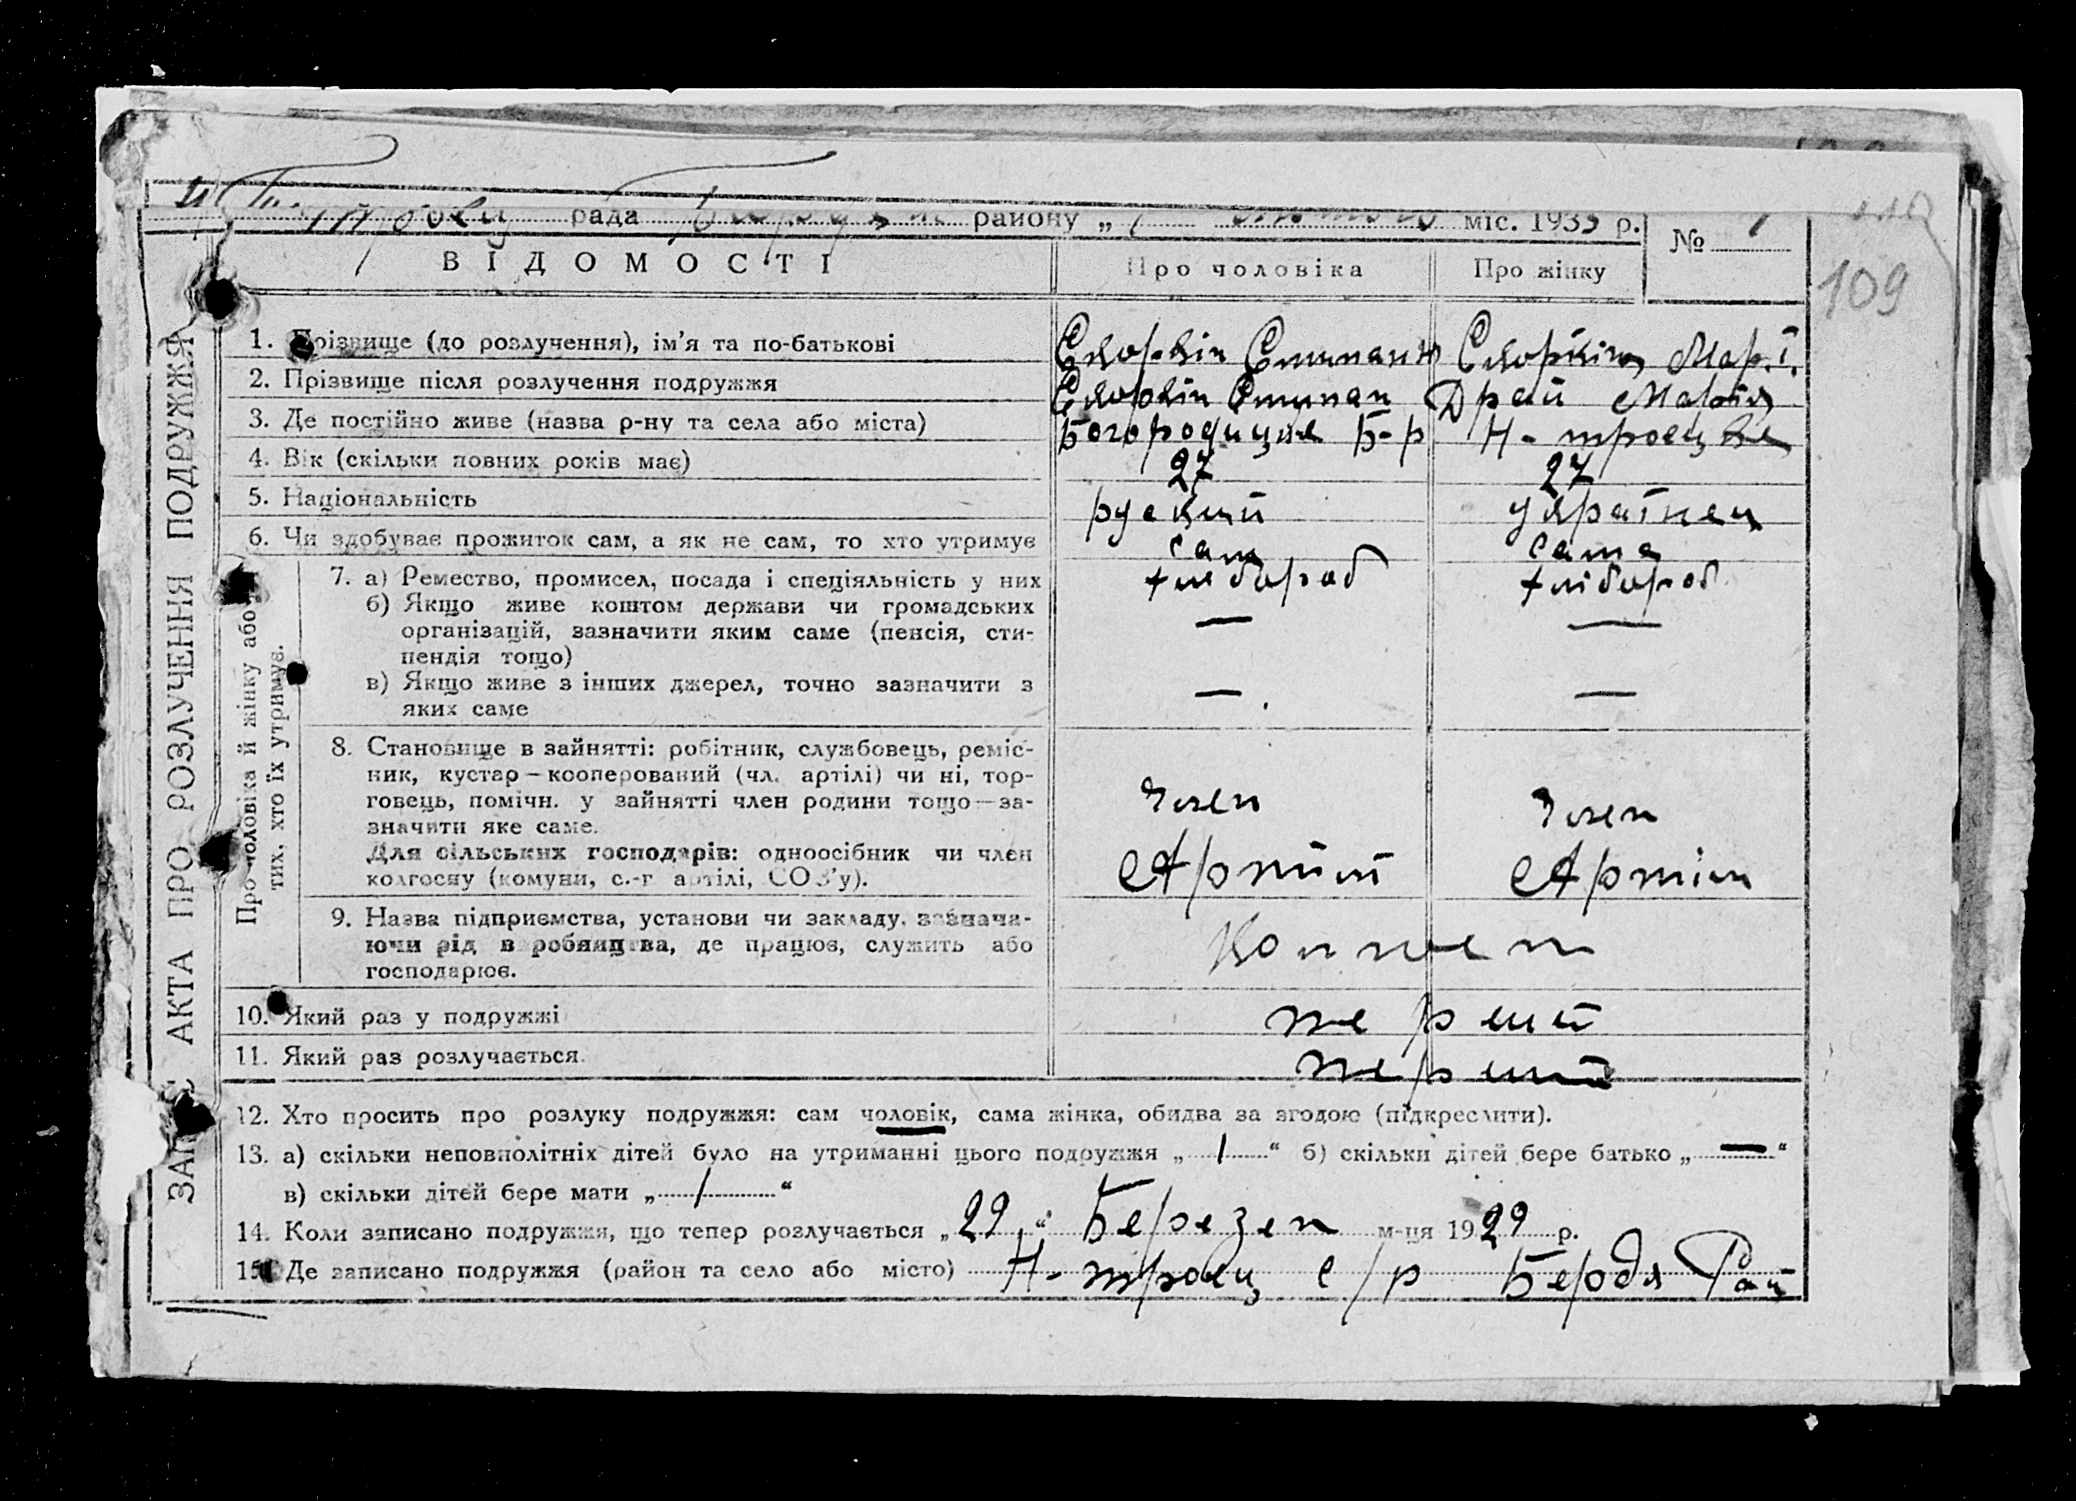 рада району „ міс. 1933 р. №
ВІДОМОСТІ Про чоловіка Про жінку
109
ЗАПИС АКТА ПРО РОЗЛУЧЕННЯ ПОДРУЖЖЯ
1. Прізвище (до розлучення), ім'я та по-батькові
2. Прізвище після розлучення подружжя Драй Марія
3. Де постійно живе (назва р-ну та села або міста) Б-р Н-
4. Вік (скільки повних років має) 27 27
5. Національність руский українец
6. Чи здобуває прожиток сам, а як не сам, то хто утримує сам сама
Про чоловіка й жінку або
тих, хто їх утримує.
7. а) Ремество, промисел, посада і спеціяльність у них хлібороб хлібороб
б) Якщо живе коштом держави чи громадських — —
організацій, зазначити яким саме (пенсія, сти-
пендія тощо)
в) Якщо живе з інших джерел, точно зазначити з — —
яких саме
8. Становище в зайнятті: робітник, службовець, реміс-
ник, кустар—кооперований (чл. артілі) чи ні, тор-
говець, помічн. у зайнятті член родини тощо—за- член член
значити яке саме.
Для сільських господарів: одноосібник чи член
колгоспу (комуни, с.-г артілі, СОЗ'у). Артілі Артілі
9. Назва підприємства, установи чи закладу, зазнача-
ючи рід виробництва, де працює, служить або
господарює.
10. Який раз у подружжі перший
11. Який раз розлучається. перший
12. Хто просить про розлуку подружжя: сам чоловік, сама жінка, обидва за згодою (підкреслити).
13. а) скільки неповнолітніх дітей було на утриманні цього подружжя „ 1 “ б) скільки дітей бере батько „ — “
в) скільки дітей бере мати „ 1 “
14. Коли записано подружжя, що тепер розлучається „ 29 “ Березен м-ця 1929 р.
15. Де записано подружжя (район та село або місто) Н-троец с/р Бердя Рай